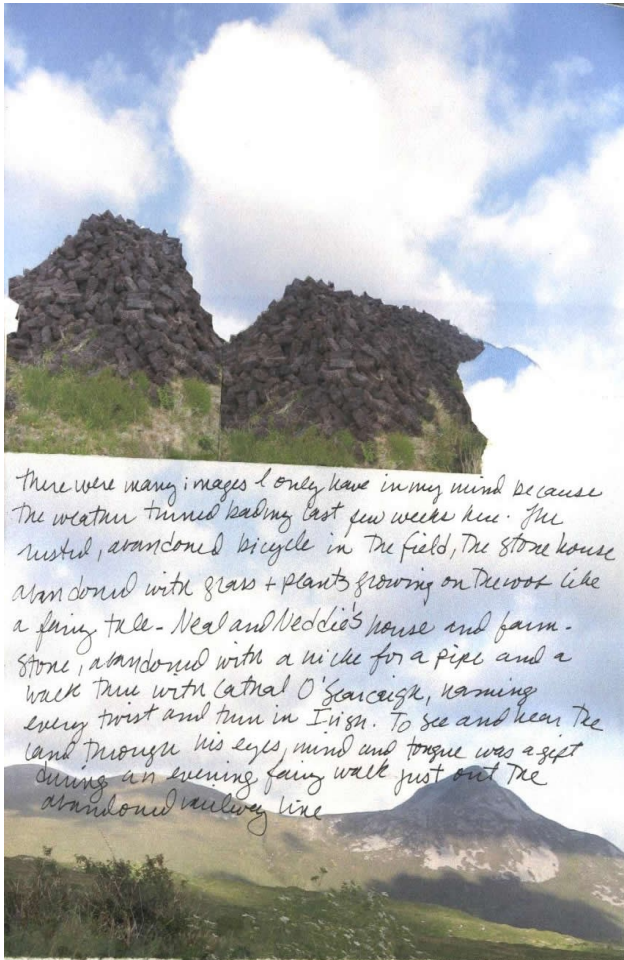 there were many images I only have in my mind because
the weather turned bad my last few weeks here. The
rusted, abandoned bicycle in the field, the stone house
abandoned with grass + plants growing on the roof like
a fairy tale - Neal and Neddie's house and farm -
stone, abandoned with a niche for a pipe and a
walk there with Cathal O'Searcaigh, naming
every twist and turn in Irish. To see and hear the
land through his eyes, mind and tongue was a gift
during an evening fairy walk just out the
abandoned railway line